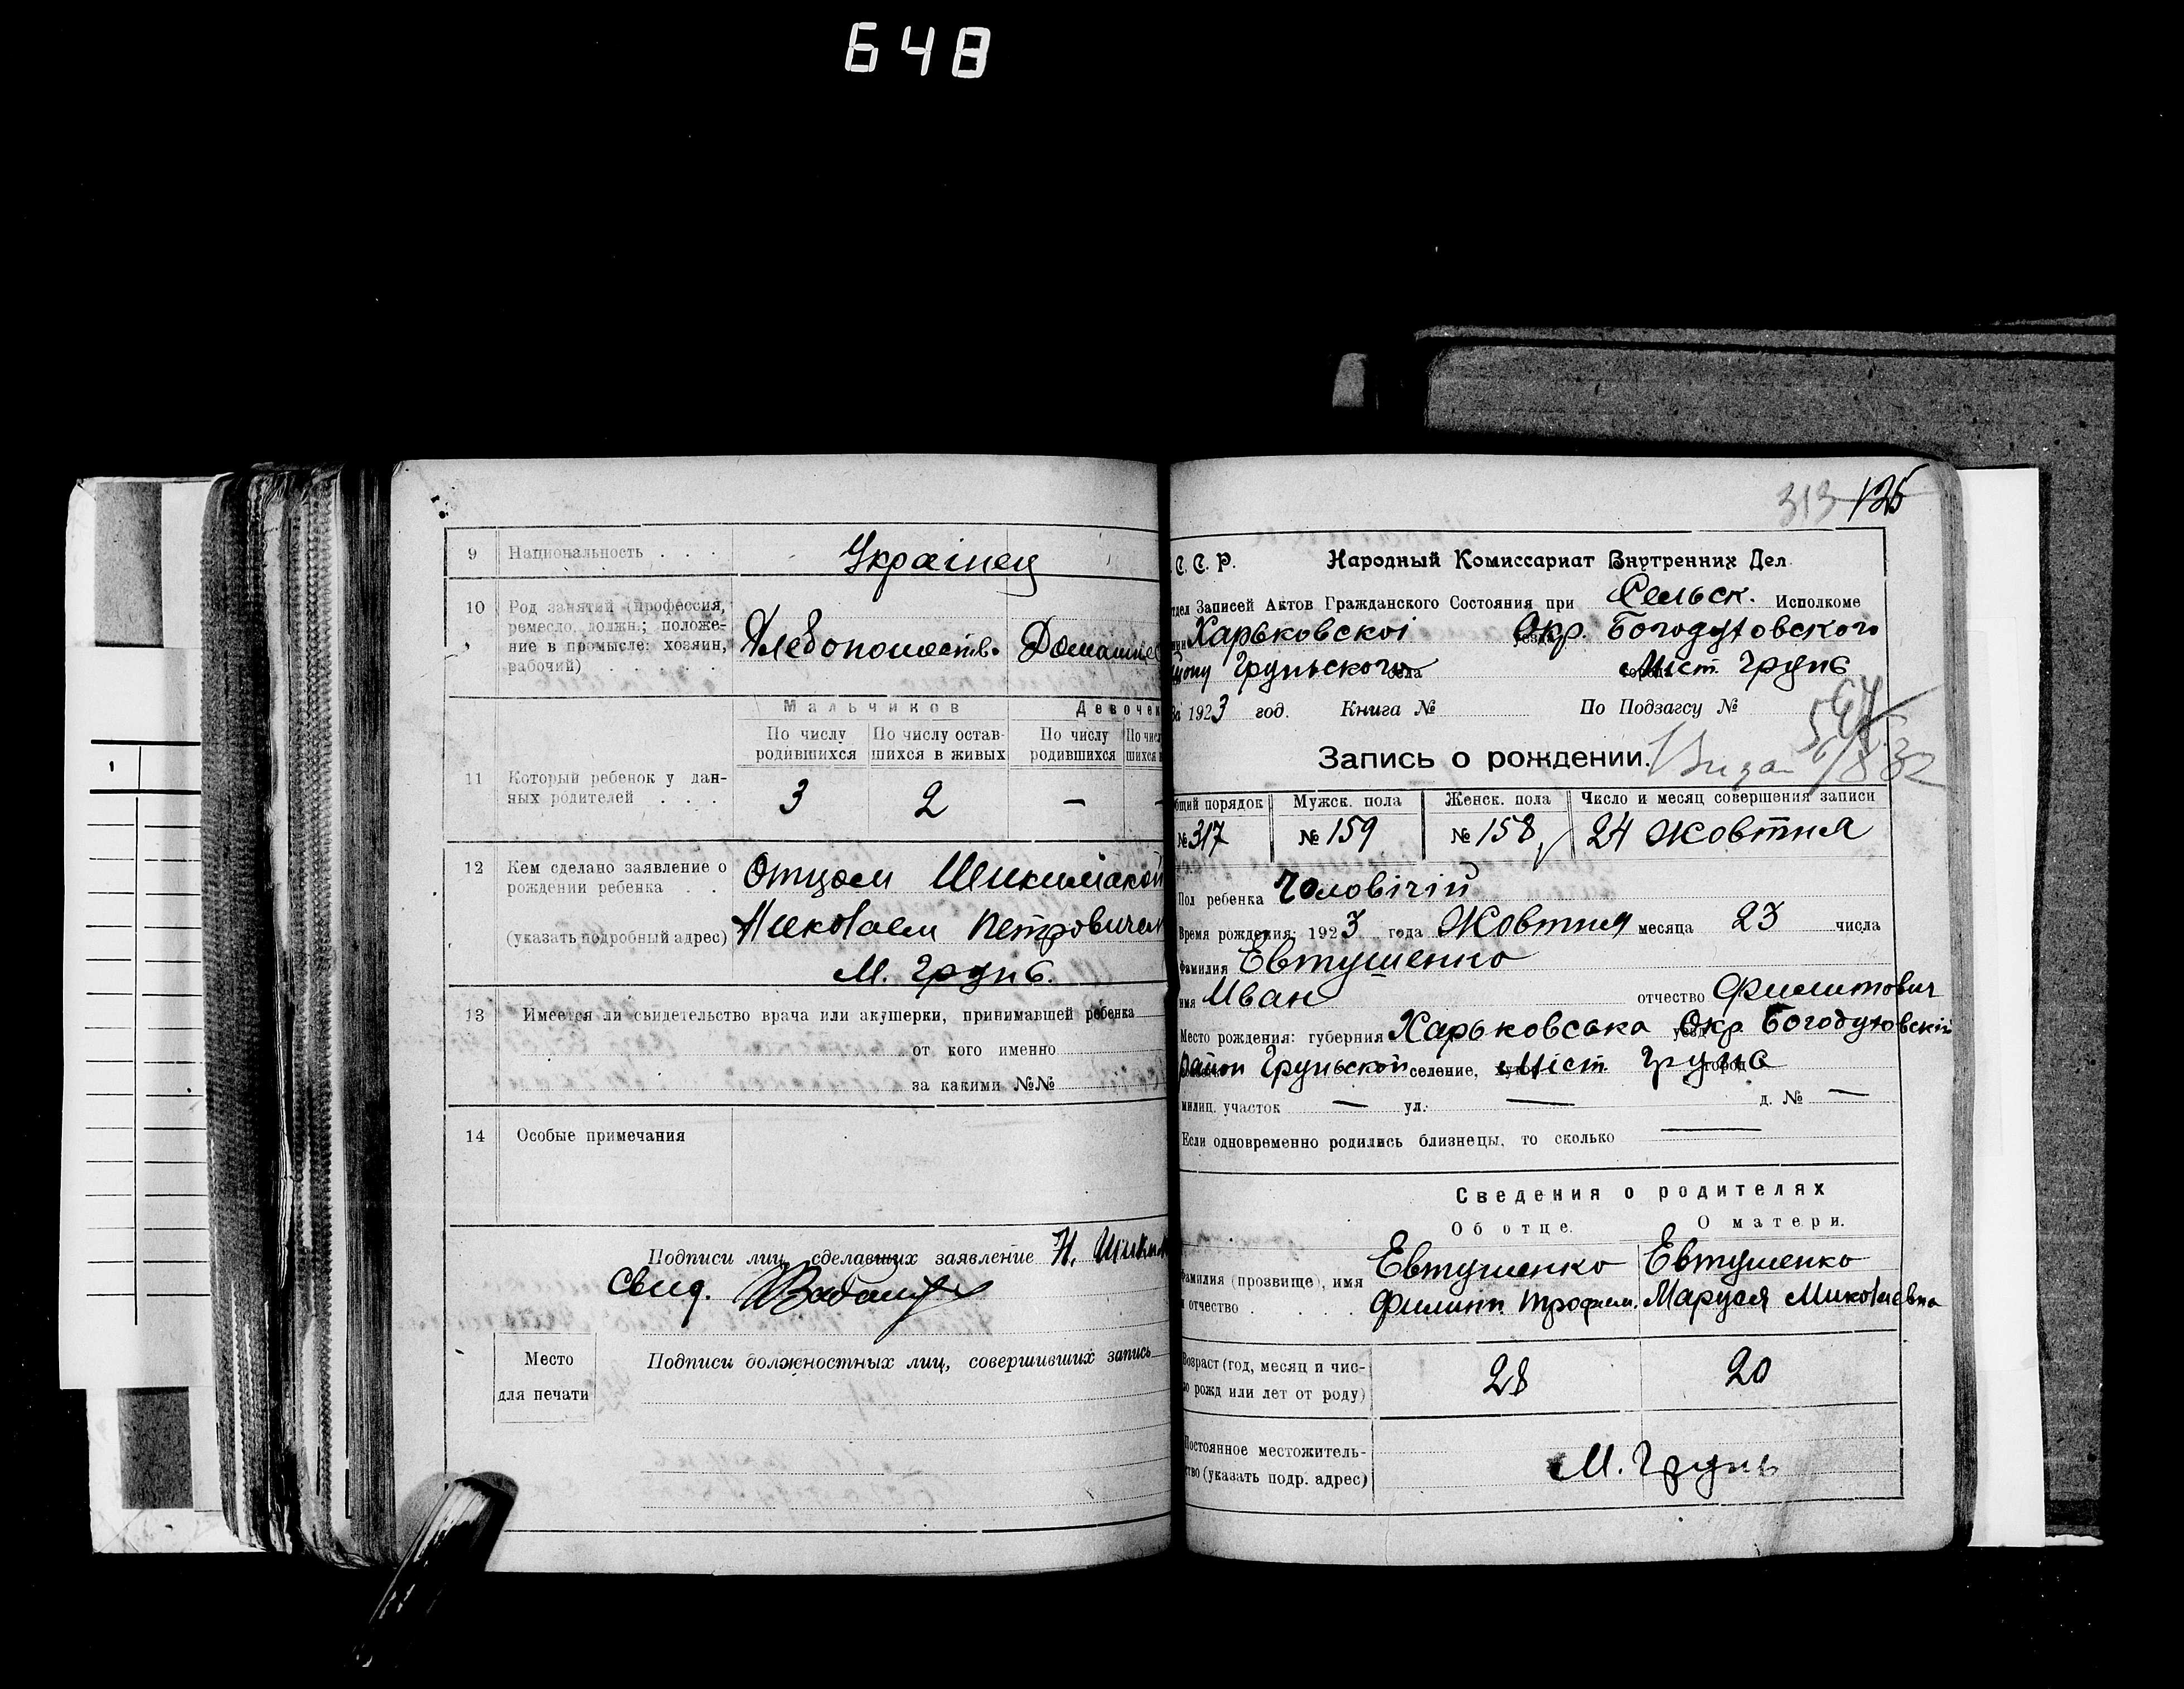 648
9 Национальность . . . Украінец
10 Род занятий (профессия,
ремесло, должн.; положе-
ние в промысле: хозяин,
рабочий) . . . . .
Хлебопашеств. Домашнее
Мальчиков Девочек
По числу родившихся По числу остав-шихся в живых По числу родившихся
11 Который ребенок у дан-
ных родителей . . . 3 2 —
12 Кем сделано заявление о
рождении ребенка . .
(указать подробный адрес)
Отцом
Николаем Петровичем
М. Грунь.
13 Имеется ли свидетельство врача или акушерки, принимавшей ребенка
от кого именно
за какими №№
14 Особые примечания
Подписи лиц, сделавших заявление Н.
Свид.
Место
для печати
Подписи должностных лиц, совершивших запись
313 125
С. С. Р. Народный Комиссариат Внутренних Дел
Отдел Записей Актов Гражданского Состояния при Сельск. Исполкоме
Харьковскоі Окр. Богодуховского
Груньского Міст. Грунь
За 1923 год. Книга № По Подзагсу №
564
Запись о рождении.
Общий порядок Мужск. пола Женск. пола Число и месяц совершения записи
№ 317 № 159 № 158 24 Жовтня
Пол ребенка Чоловічій
Время рождения: 1923 года Жовтня месяца 23 числа
Фамилия Евтушенко
имя Иван отчество Филиппович
Место рождения: губерния Харьковська Окр. Богодуховскій
район Груньской селение, Міст. Грунь
милиц. участок — ул. — д. № —
Если одновременно родились близнецы, то сколько —
Сведения о родителях
Об отце. О матери.
Фамилия (прозвище), имя
и отчество . . . .
Евтушенко Евтушенко
Филипп. Трофим. Маруся Миколаевна
Возраст (год, месяц и чис-
ло рожд или лет от роду) 28 20
Постоянное местожитель-
ство (указать подр. адрес) М. Грунь